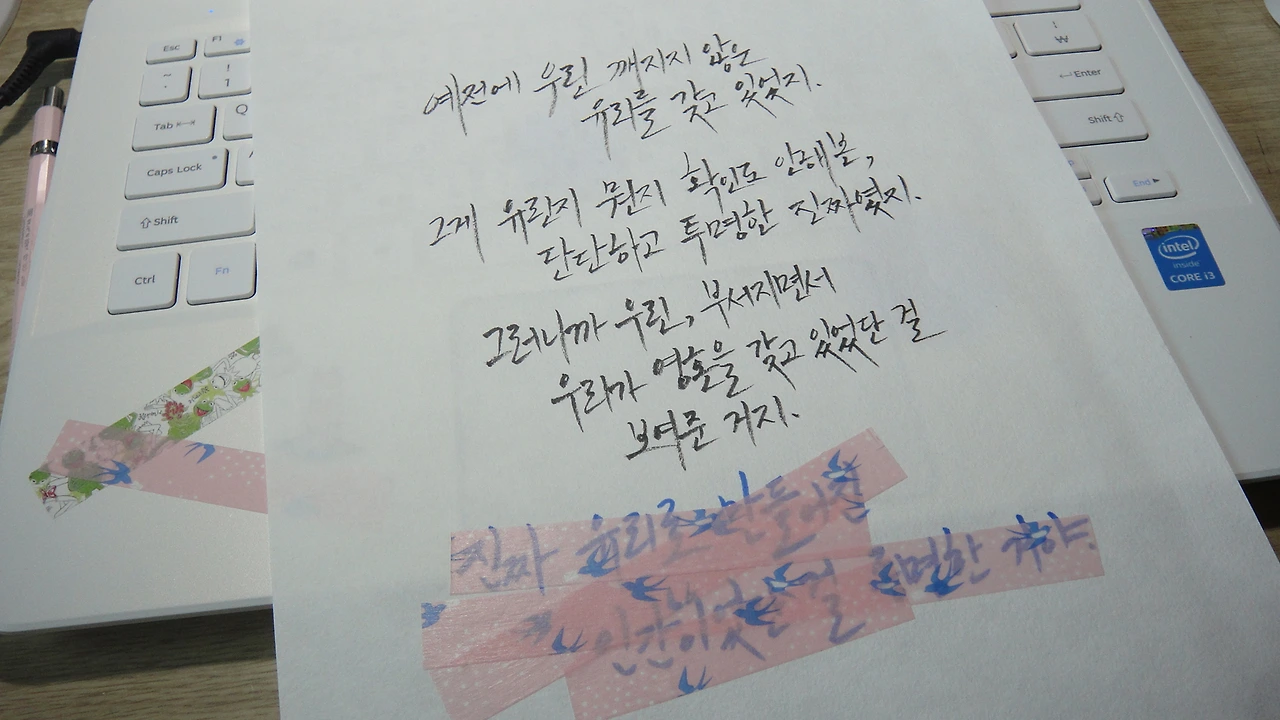 예전에 우린 깨지지 않은
유리를 갖고 있었지.
그게 유린지 뭔지 확인도 안해본,
단단하고 투명한 진짜였지.
그러니까 우린, 부서지면서
우리가 영혼을 갖고 있었단 걸
보여준 거지.
진짜 유리로 만들어진
인간이었단 걸 증명한 거야.
Esc
F1
~
`
!
1
Tab
Q
Caps Lock
Shift
Ctrl
Fn
₩
Enter
Shift
End
intel
inside
CORE i3